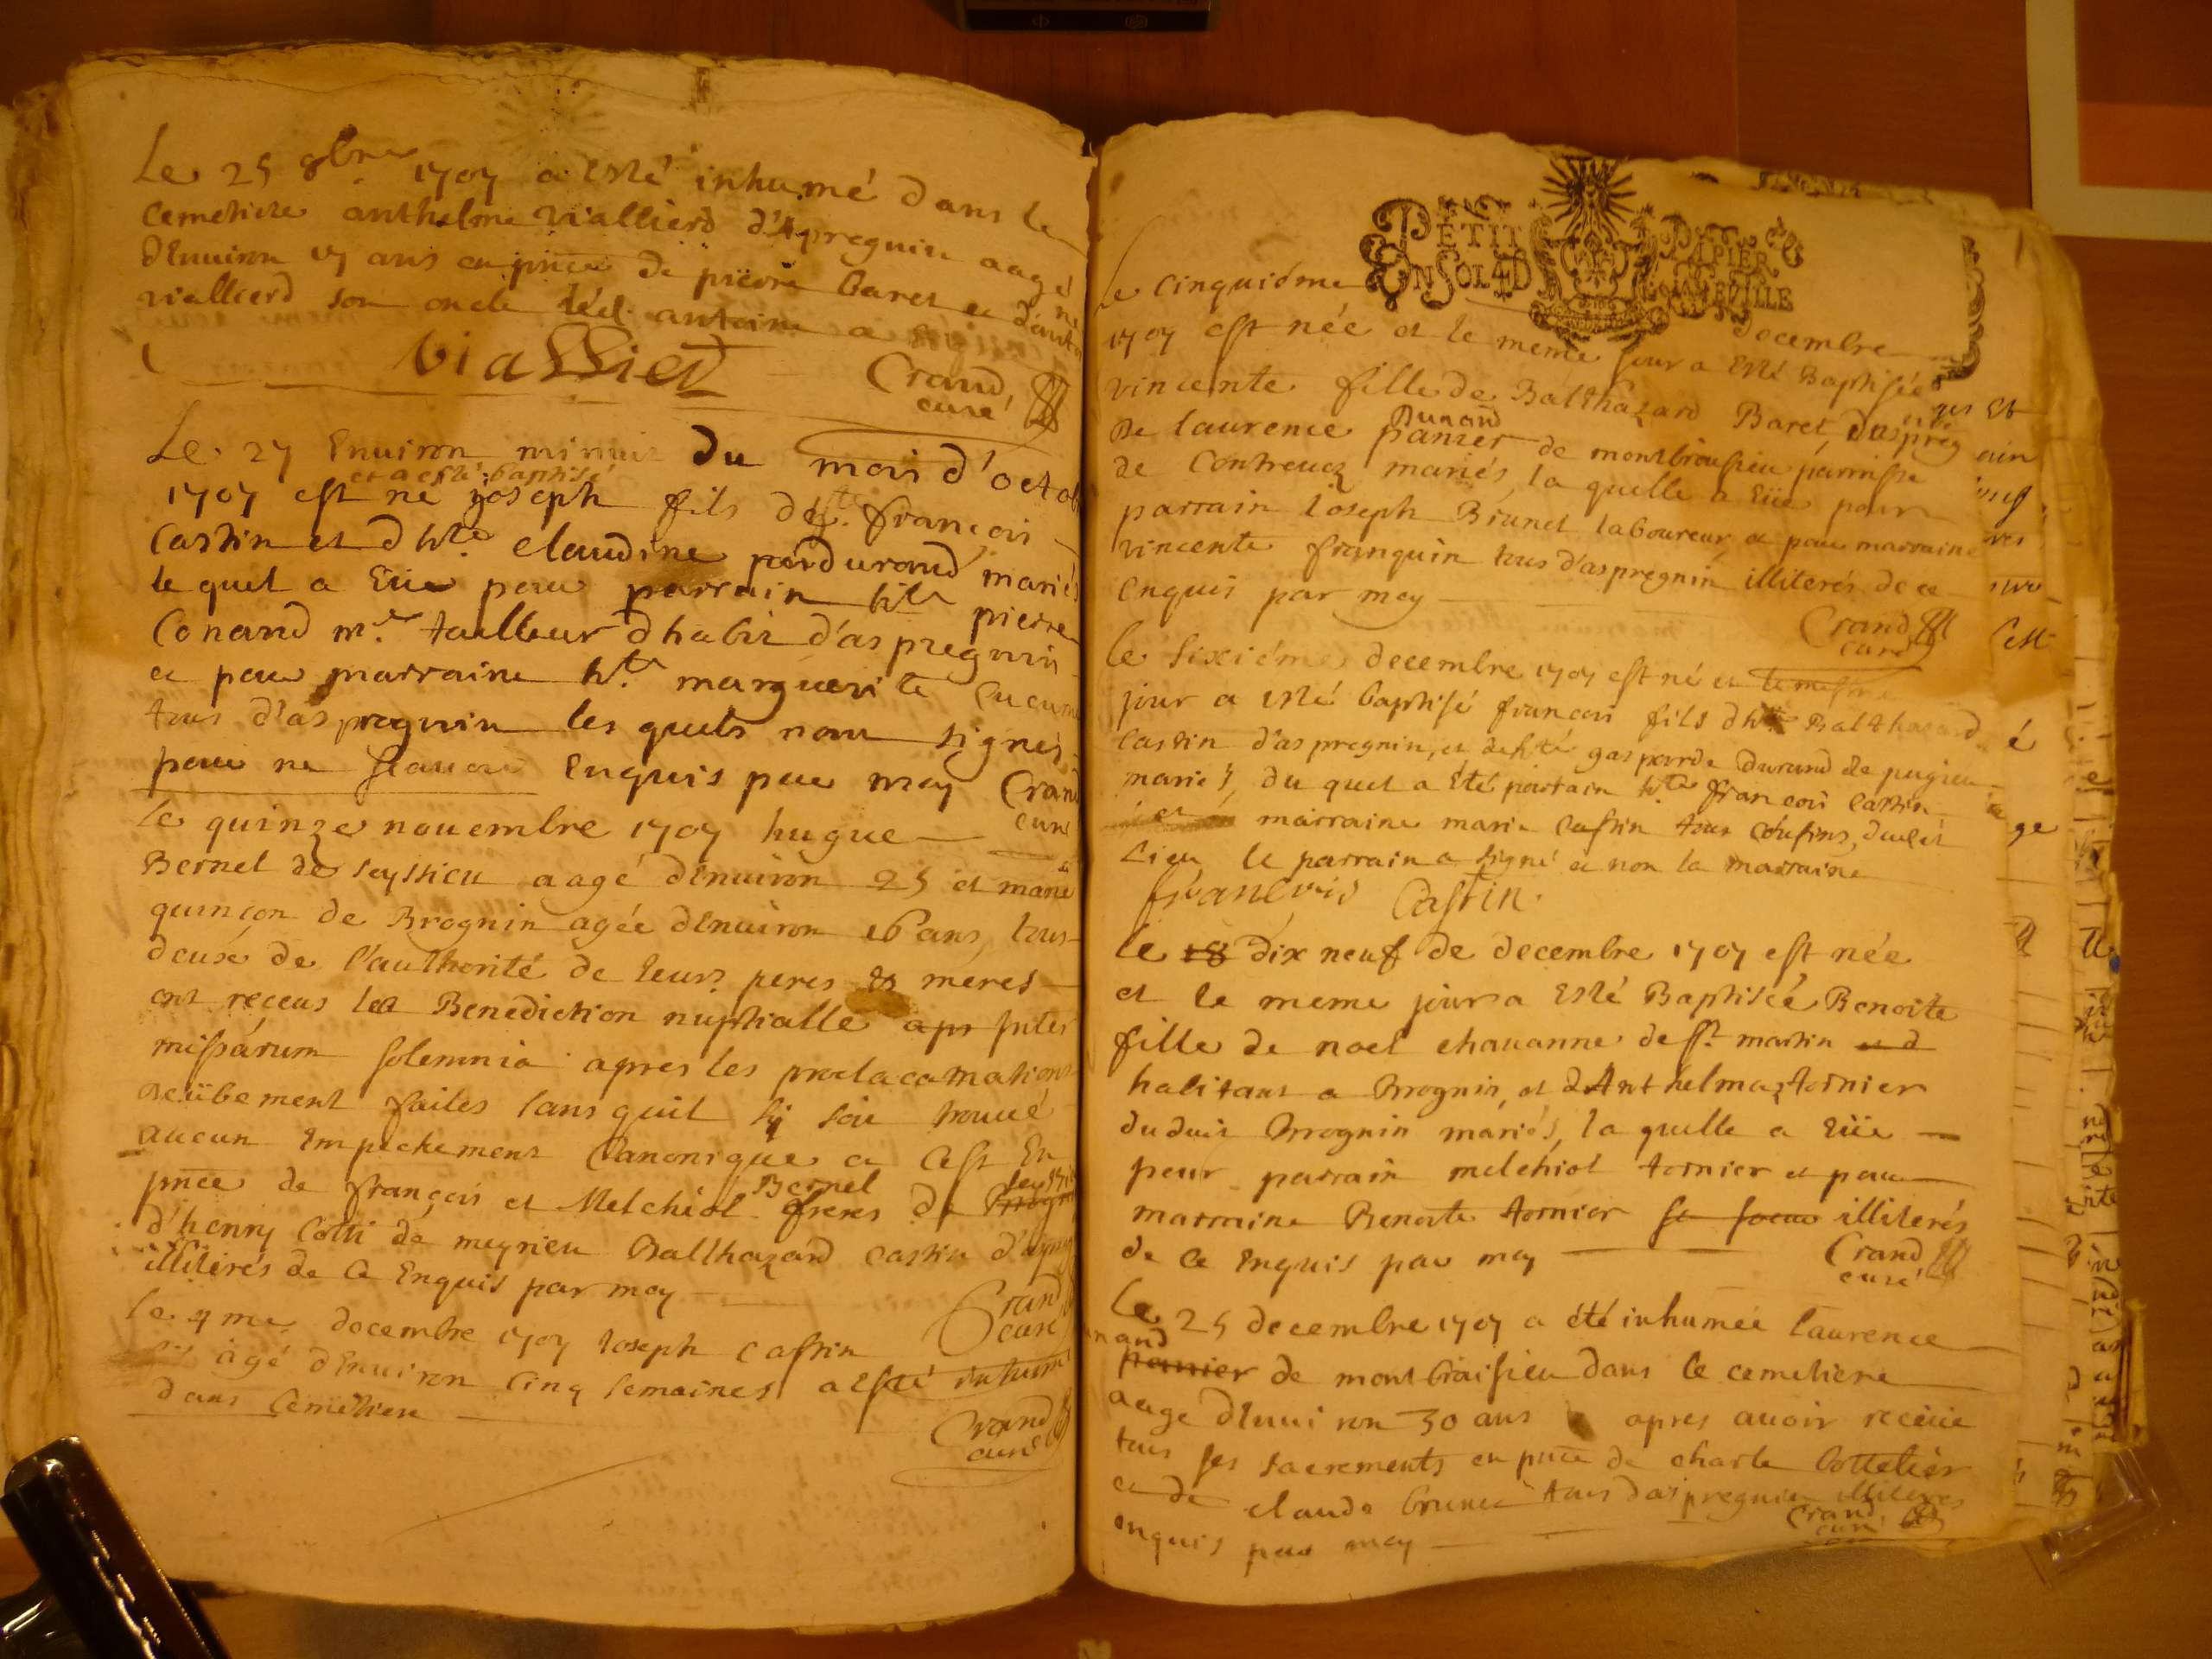 Le 25 8bre 1707 a esté inhumé dans le
cemetiere anthelme viallierd d'Apregnin aagé
d'enuiron ans en pnce de pierre Baret et d'anto
viallierd son oncle led. antoine a
Viallierd
Crand
curé
Le 27 Enuiron minuit du mois d'octob
et a esté baptisé
1707 est né joseph fils de françois
Castin et d hte claudine durand mariés
le quel a Eüe pour parrain hte pierre
Conand mre tailleur d habit d'aspregnin
et pour marraine hte marguerite
tous d'aspregnin les quels nont signés
pour ne scauoir Enquis par moy Crand
curé
le quinze nouembre 1707 hugue
Bernel de seyssieu aagé d'Enuiron 25 et marie
quinçon de Brognin agée d'Enuiron 16 ans, tous
deux de l'authorité de leurs peres et meres
ont receus la Benediction nuptialle apr inter
missarum solemnia apres les proclacamations
deübement faites sans quil sy soit trouué
aucun Impechement Canonique et cest En
Bernel seyssieu
pnce de françois et Melchiol freres de Brogni
d'henry Cotti de meyrieu Balthazard Castin d'aspreg
illiterés de ce Enquis par moy
Crand
curé
le 4me decembre 1707 Ioseph Castin
agé d'Enuiron cinq semaines a esté inhumé
dans cemetiere
Crand
curé
PETIT PAPIER
EN SOL 4D LA FEUILLE
le cinquiéme decembre
1707 est née et le meme jour a esté Baptisée
vincente fille de Balthazard Baret d'aspreg
Dunand
De laurence panier de montbrousieu parrisse
de Contreuoz mariés, la quelle a Eüe pour
parrain Ioseph Brunet laboureur et pour marraine
vincente franquin tous d'aspregnin illiterés de ce
Enquis par moy
Crand
curé
le sixiéme decembre 1707 est né et le mesme
jour a esté baptisé françois fils d hte Balthazard
Castin d'aspregnin, et de hte gasparde Durand de pugieu
mariés, du quel a été parrain hte françois Castin,
et marraine marie Castin tous cousins, dudit
Lieu le parrain a signé et non la marraine
francois Castin
le 18 dix neuf de decembre 1707 est née
et le meme jour a Esté Baptisée Benoite
fille de noel chauanne de st martin et d
habitant a Brognin, et d Anthelmaz tornier
dudit Brognin mariés, la quelle a Eüe
pour parrain melchiol tornier et pour
marraine Benoite tornier sa soeur illiterés
de ce Enquis par moy
Crand
curé
Le 25 decembre 1707 a été inhumée laurence
unand
panier de montbraisieu dans le cemetiere
aage d'Enuiron 30 ans apres auoir receüe
tous ses sacrements en pnce de charle Bottelier
et de claude brunet tous d'aspregnin illiteres
enquis par moy
Crand
curé